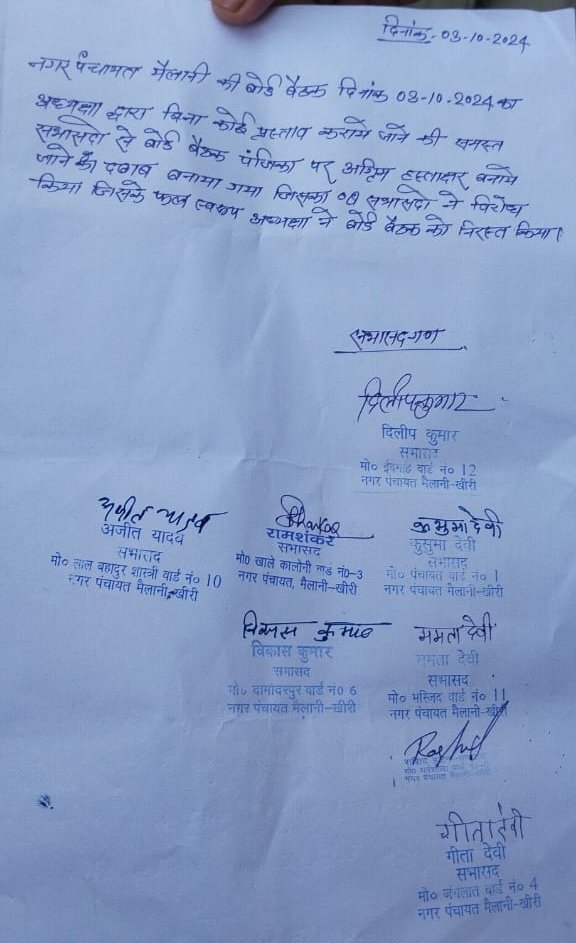 दिनांक- 03-10-2024
नगर पंचायत मैलानी की बोर्ड बैठक दिनांक 03-10-2024 का
अध्यक्षा द्वारा बिना कोई प्रस्ताव कराये जाने की समस्त
सभासदो से बोर्ड बैठक पंजिका पर अग्रिम हस्ताक्षर बनाये
जाने का दबाब बनाया गया जिसका 08 सभासदो ने विरोध
किया जिसके फल स्वरूप अध्यक्षा ने बोर्ड बैठक को निरस्त किया।
सभासदगण
दिलीपकुमार
दिलीप कुमार
सभासद
मो० ईदगाह वार्ड नं० 12
नगर पंचायत मैलानी-खीरी
अजीत यादव
अजीत यादव
सभासद
मो० लाल बहादुर शास्त्री वार्ड नं० 10
नगर पंचायत मैलानी-खीरी
रामशंकर
सभासद
मो० खाले कालोनी वार्ड नं०-3
नगर पंचायत, मैलानी-खीरी
कुसुमा देवी
कुसुमा देवी
सभासद
मो० पंचायत वार्ड नं० 1
नगर पंचायत मैलानी-खीरी
विकास कुमार
विकास कुमार
सभासद
मो० दामोदरपुर वार्ड नं० 6
नगर पंचायत मैलानी-खीरी
ममता देवी
ममता देवी
सभासद
मो० मस्जिद वार्ड नं० 11
नगर पंचायत मैलानी-खीरी
नगर पंचायत मैलानी-खीरी
गीता देवी
गीता देवी
सभासद
मो० जंगलात वार्ड नं० 4
नगर पंचायत मैलानी-खीरी